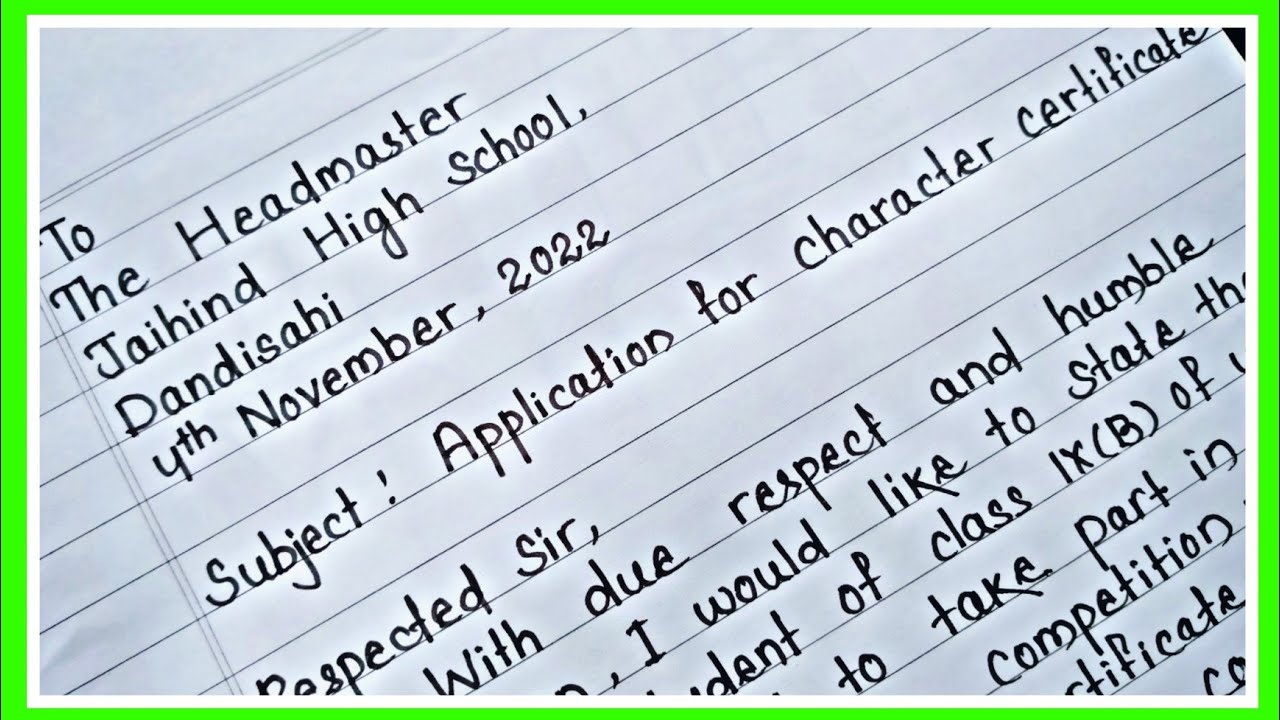 To
The Headmaster
Jaihind High School,
Dandisahi
4th November, 2022
Subject: Application for character certificate
Respected Sir,
With due respect and humble
, I would like to state
student of class IX(B) of
to take part in
competition
certificate